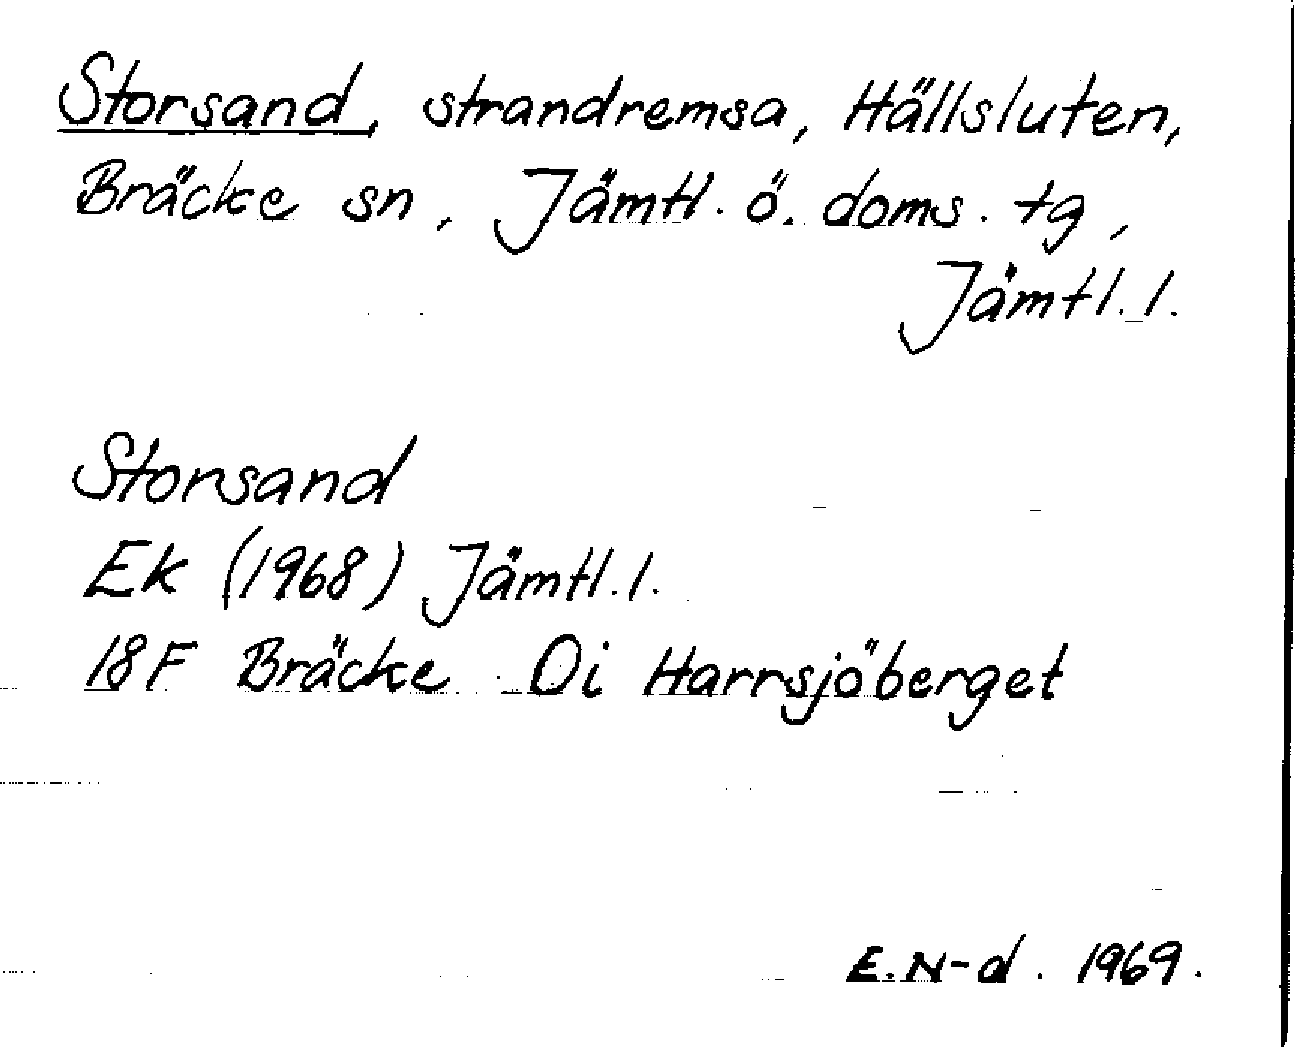 Storsand, strandremsa, Hällsluten,
Bräcke sn, Jämtl. ö. doms. tg,
Jämtl. l.
Storsand
Ek (1968) Jämtl. l.
18F Bräcke Oi Harrsjöberget
E. N-d. 1969.